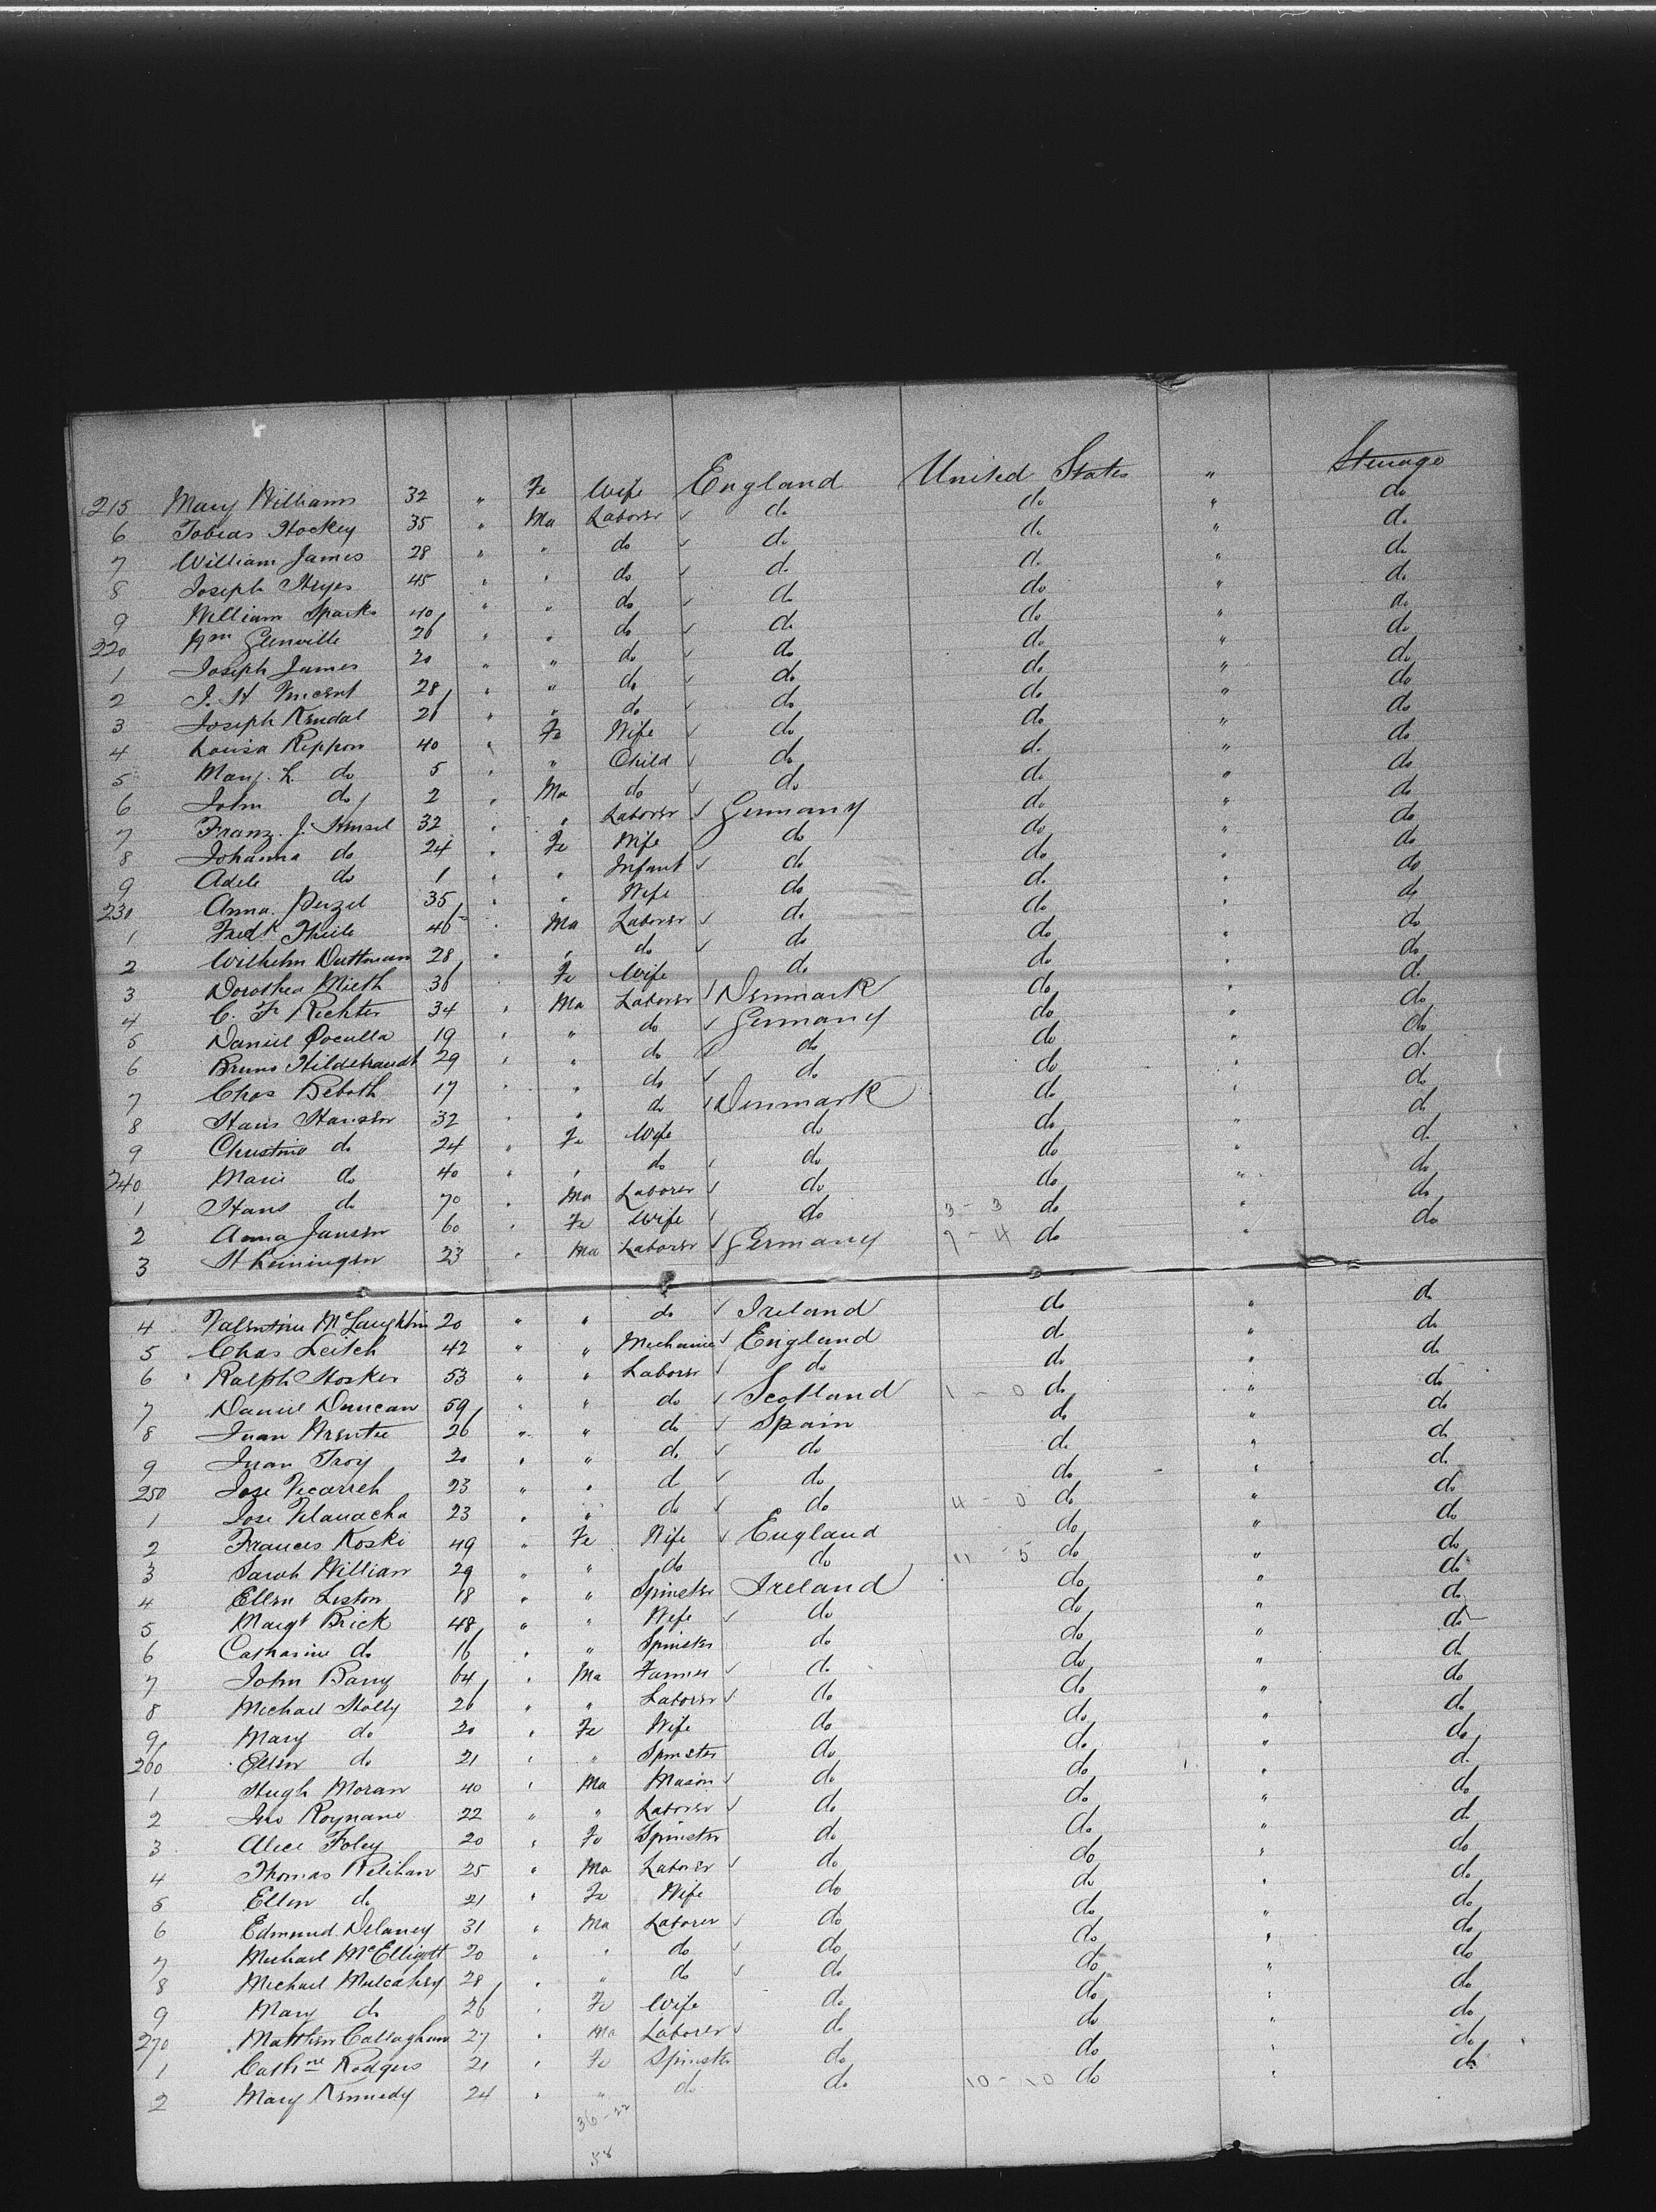 215 Mary Williams 32 " Fe Wife England United States " Steerage
6 Tobias Hockey 35 " Ma Laborer ✓ do do " do
7 William James 28 " " do ✓ do do " do
8 Joseph Heyes 45 " " do ✓ do do " do
9 William Sparks 40 " " do ✓ do do " do
220 Wm Glenville 26 " " do ✓ do do " do
1 Joseph James 20 " " do ✓ do do " do
2 J. H Vincent 28 " " do ✓ do do " do
3 Joseph Kendal 26 " " do ✓ do do " do
4 Louisa Rippon 40 " Fe Wife ✓ do do " do
5 Mary. L. do 5 " " Child ✓ do do " do
6 John do 2 " Ma do ✓ do do " do
7 Franz. J. Hensel 32 " " Laborer ✓ Germany do " do
8 Johanna do 24 " Fe Wife do do " do
9 Adele do 1 " " Infant ✓ do do " do
230 Anna 35 " " Wife do do " do
1 Fredk Thiele 46 " Ma Laborer ✓ do do " do
2 Wilhelm Duttman 28 " " do ✓ do do " do
3 Dorothea Mieth 36 " Fe Wife do do " do
4 C. Fr Richter 34 " Ma Laborer ✓ Denmark do " do
5 Daniel 19 " " do ✓ Germany do " do
6 Bruno Hildebrandt 29 " " do ✓ do do " do
7 Chas Beboth 17 " " do ✓ do do " do
8 Hans Hansen 32 " " do ✓ Denmark do " do
9 Christine do 24 " Fe Wife do do " do
240 Marie do 40 " " do ✓ do do " do
1 Hans do 70 " Ma Laborer ✓ do do " do
2 Anna Jansen 60 " Fe Wife ✓ do 3-3 do " do
3 H Leiningen 23 " Ma Laborer ✓ Germany 7-4 do " do
4 Valentine McLaughlin 20 " " do ✓ Ireland do " do
5 Chas Leitch 42 " " Mechanic ✓ England do " do
6 Ralph Hosker 53 " " Laborer ✓ do do " do
7 Daniel Duncan 59 " " do ✓ Scotland 1-0 do " do
8 Juan 26 " " do ✓ Spain do " do
9 Juan Troy 20 " " do ✓ do do " do
250 Jose 23 " " do ✓ do do " do
1 Jose 23 " " do ✓ do 4-0 do " do
2 Frances Koski 49 " Fe Wife ✓ England do " do
3 Sarah William 29 " " do do 11-5 do " do
4 Ellen Liston 18 " " Spinster Ireland do " do
5 Margt Brick 48 " " Wife ✓ do do " do
6 Catharine do 16 " " Spinster do do " do
7 John Barry 64 " Ma Farmer ✓ do do " do
8 Michael Holly 26 " " Laborer ✓ do do " do
9 Mary do 20 " Fe Wife do do " do
260 Ellen do 21 " " Spinster do do " do
1 Hugh Moran 40 " Ma Mason ✓ do do " do
2 Jno Roynane 22 " " Laborer ✓ do do " do
3 Alice Foley 20 " Fe Spinster do do " do
4 Thomas Relihan 25 " Ma Laborer ✓ do do " do
5 Ellen do 21 " Fe Wife do do " do
6 Edmund Delaney 31 " Ma Laborer ✓ do do " do
7 Michael McElligott 20 " " do ✓ do do " do
8 Michael Mulcahey 28 " " do ✓ do do " do
9 Mary do 26 " Fe Wife do do " do
270 Matthew Callaghan 27 " Ma Laborer ✓ do do " do
1 Cathne Rodgers 21 " Fe Spinster do do " do
2 Mary Kennedy 24 " " do do 10-10 do " do
36-22
58